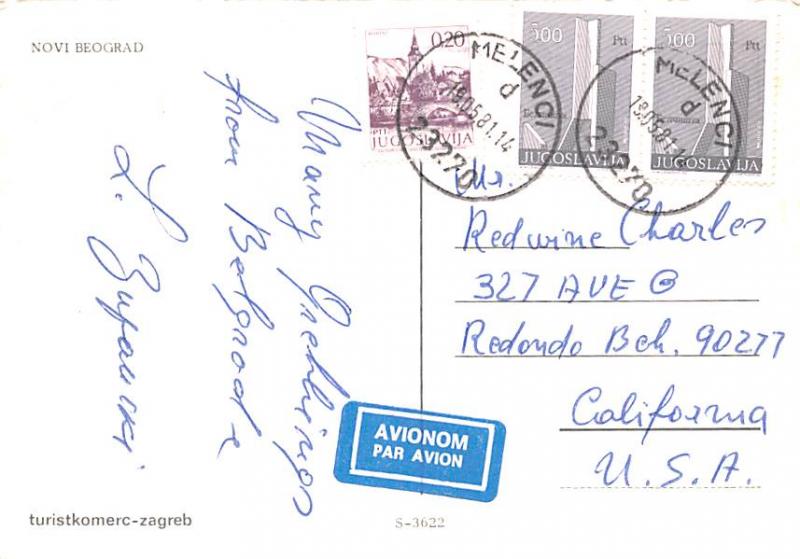 NOVI BEOGRAD
Many Greetings
from Belgrade
L. Zupanski
0,20
PTT
JUGOSLAVIJA
500 Ptt
JUGOSLAVIJA
500 Ptt
JUGOSLAVIJA
MELENCI
d
18.05.81.14
23270
MELENCI
d
18.05.81.14
23270
Mr.
Redwine Charles
327 AVE G
Redondo Bch. 90277
California
U.S.A.
AVIONOM
PAR AVION
turistkomerc-zagreb
S-3622